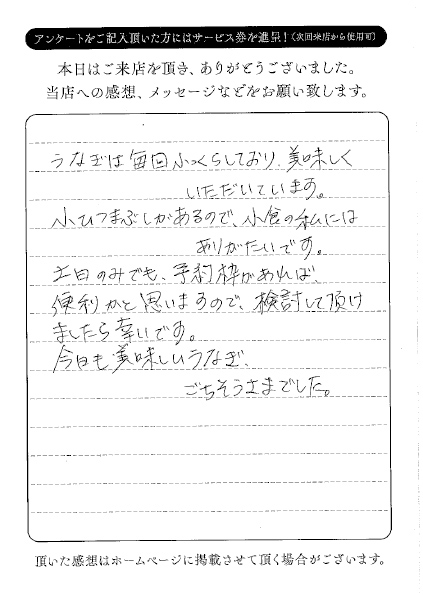 アンケートをご記入頂いた方にはサービス券を進呈！(次回来店から使用可)
本日はご来店を頂き、ありがとうございました。
当店への感想、メッセージなどをお願い致します。
うなぎは毎回ふっくらしており、美味しく
いただいています。
小ひつまぶしがあるので、小食の私には
ありがたいです。
土日のみでも、予約枠があれば、
便利かと思いますので、検討して頂け
ましたら幸いです。
今日も美味しいうなぎ、
ごちそうさまでした。
頂いた感想はホームページに掲載させて頂く場合がございます。